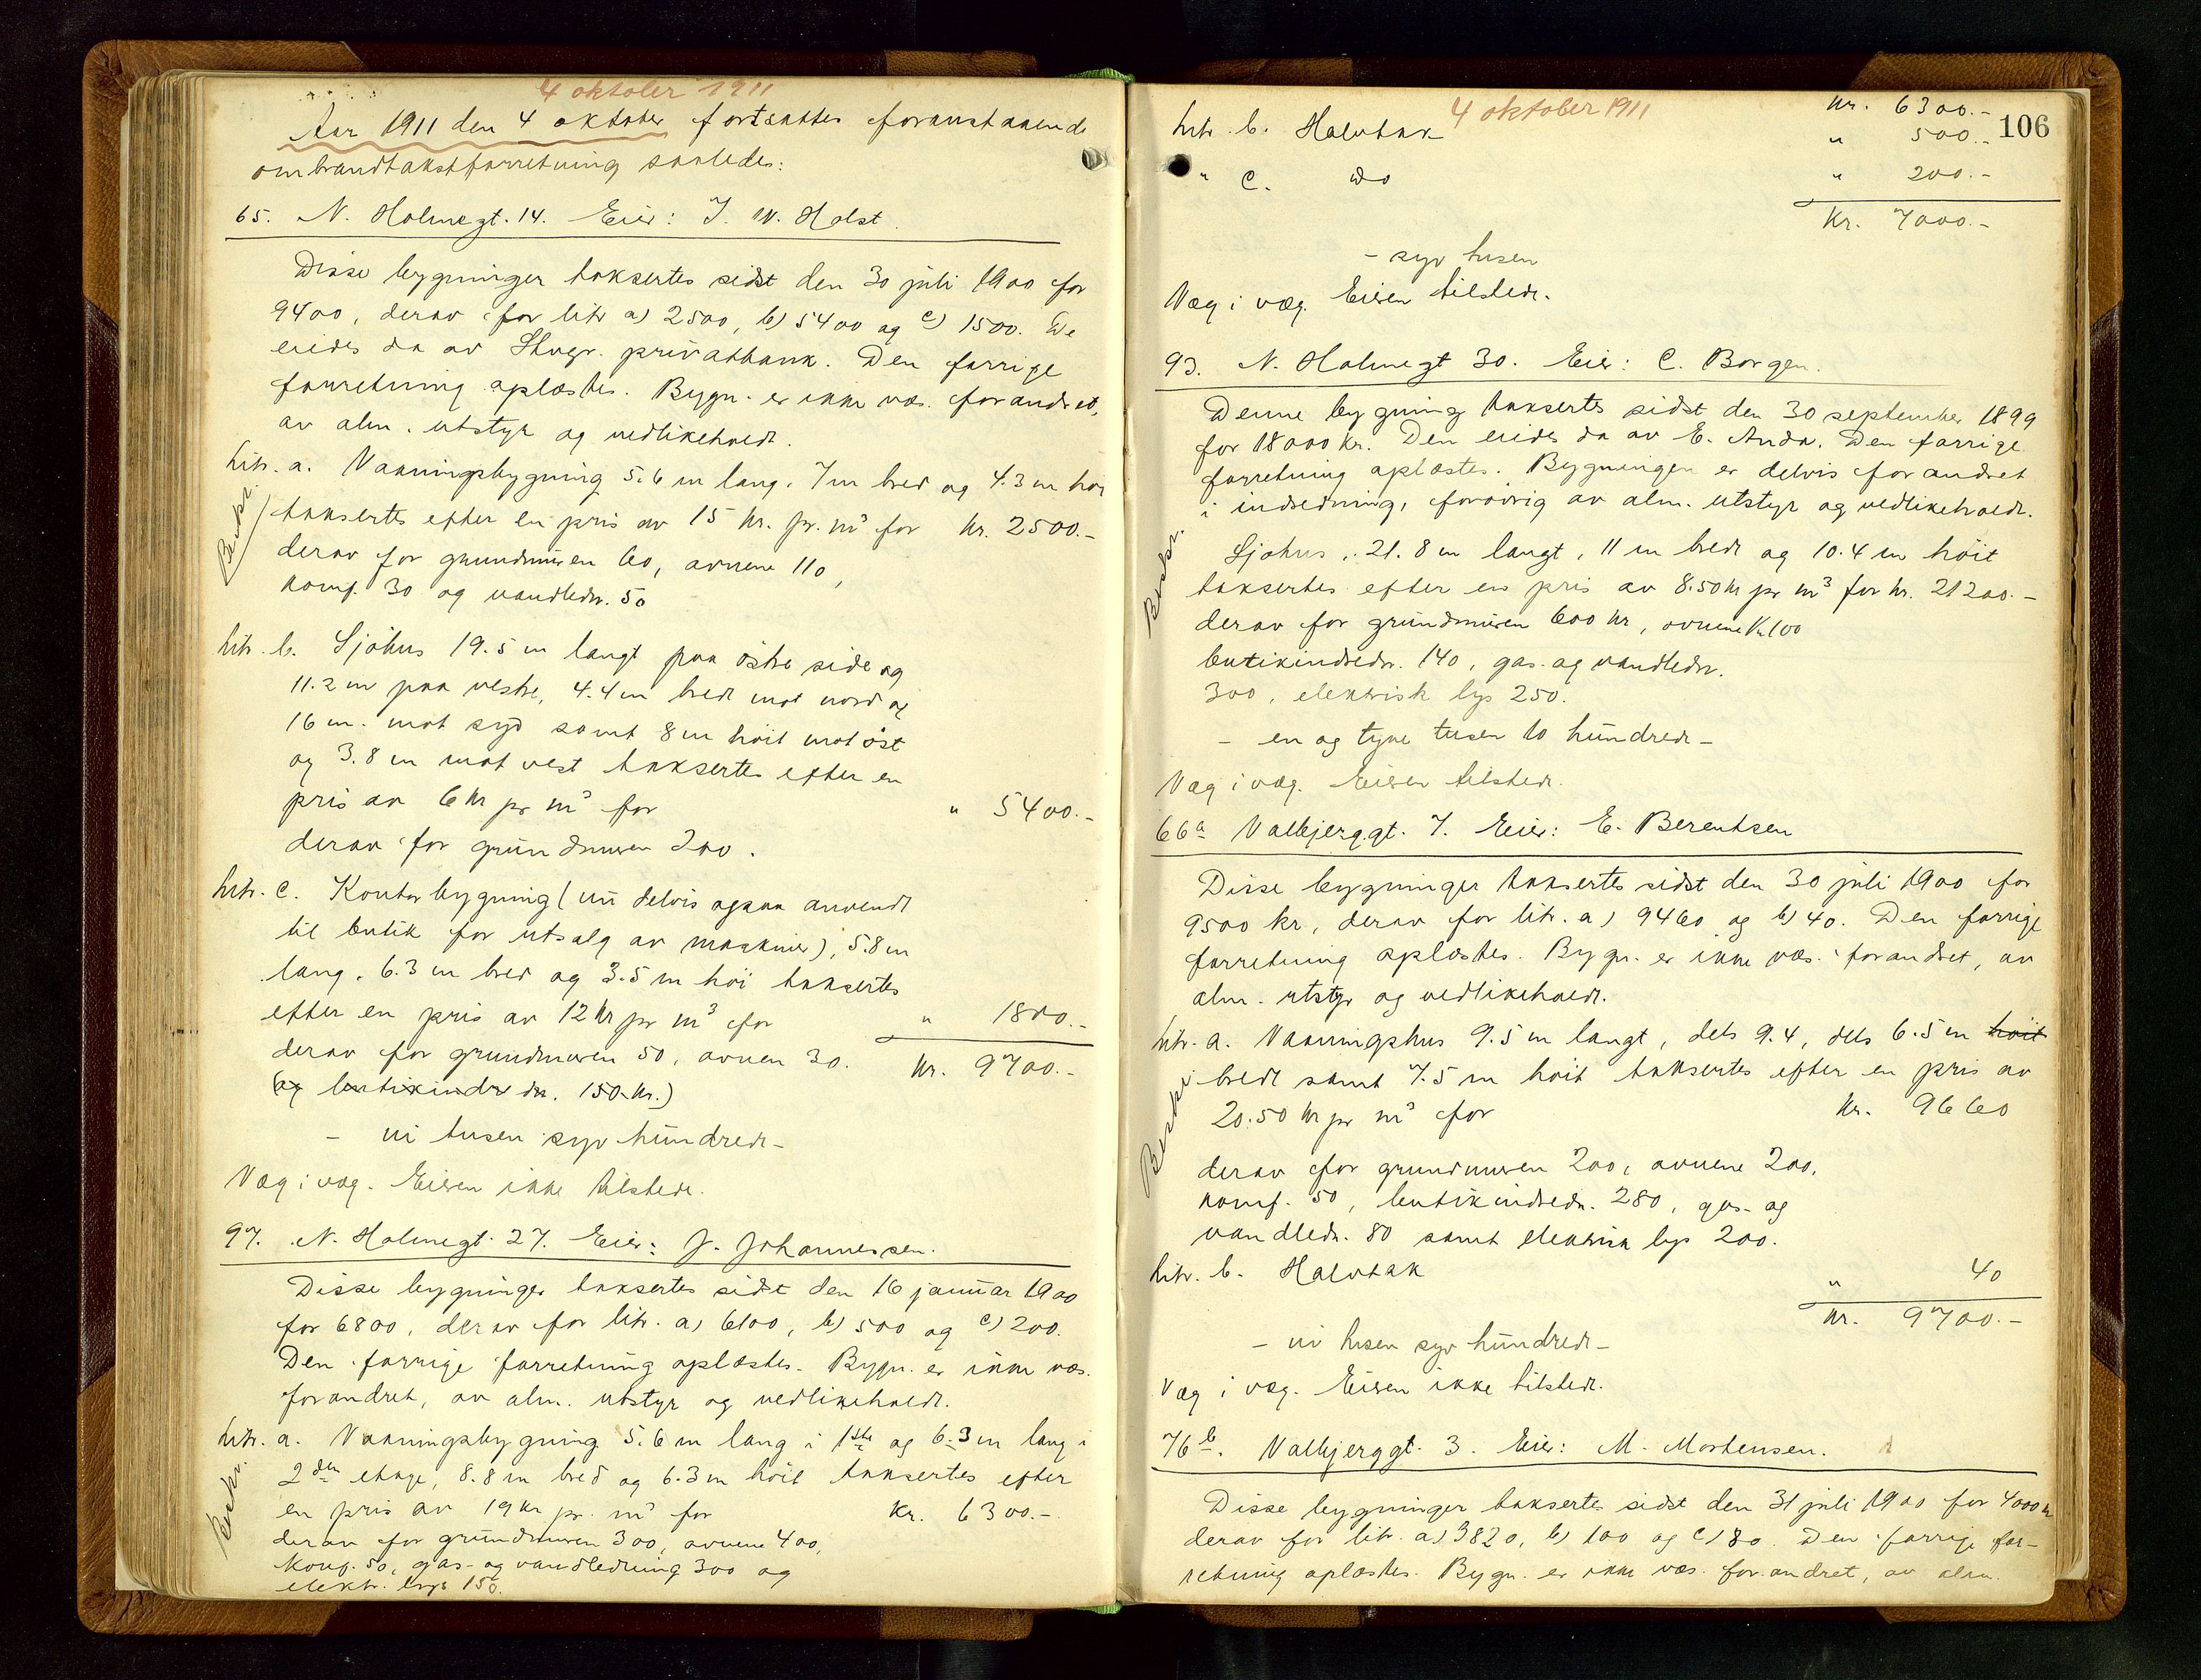 4 oktober 1911
Aar 1911 den 4 oktober fortsattes foranstaaende
ombrandtakstforretning saaledes:
65. N. Holmegt. 14. Eier: J. W. Holst.
Disse bygninger taksertes sidst den 30 juli 1900 for
9400, derav for litr a) 2500, b) 5400 og c) 1500. De
eiedes da av Stvgr. privatbank. Den forrige
forretning oplæstes. Bygn. er ikke væs. forandret,
av alm. utstyr og vedlikeholdt.
Litr. a. Vaaningsbygning 5.6 m lang, 7 m bred og 4.3 m høi
taksertes efter en pris av 15 kr. pr. m³ for kr. 2500.-
derav for grundmuren 60, ovnene 110,
komf. 30 og vandledn. 50
Beskr.
Litr. b. Sjøhus 19.5 m langt paa østre side og
11.2 m paa vestre, 4.4 m bredt mot nord og
16 m. mot syd samt 8 m høit mot øst
og 3.8 m mot vest taksertes efter en
pris av 6 kr pr m³ for " 5400.-
derav for grundmuren 200.
Litr. c. Kontorbygning (nu delvis ogsaa anvendt
til butik for utsalg av maskiner), 5.8 m
lang, 6.3 m bred og 3.5 m høi taksertes
efter en pris av 12 kr pr m³ for " 1800.-
derav for grundmuren 50, ovnen 30. Kr. 9700.-
(og butikindredn. 150 kr.)
- ni tusen syv hundrede -
Væg i væg. Eieren ikke tilstede.
97. N. Holmegt. 27. Eier: J. Johannessen.
Disse bygninger taksertes sidst den 16 januar 1900
for 6800, derav for litr. a) 6100, b) 500 og c) 200.
Den forrige forretning oplæstes. Bygn. er ikke væs.
forandret, av alm. utstyr og vedlikeholdt.
Litr. a. Vaaningsbygning 5.6 m lang i 1ste og 6.3 m lang i
2den etage, 8.8 m bred og 6.3 m høit taksertes efter
en pris av 19 kr pr. m³ for Kr. 6300.-
derav for grundmuren 300, ovnene 400,
komf. 50, gas- og vandledning 300 og
elektr. lys 150.
Beskr.
4 oktober 1911
106
Kr. 6300.-
Litr. b. Halvtak " 500.-
" c. do " 200.-
Kr. 7000.-
- syv tusen
Væg i væg. Eieren tilstede.
93. N. Holmegt 30. Eier: C. Borgen.
Denne bygning taksertes sidst den 30 september 1899
for 18000 kr. Den eiedes da av E. Anda. Den forrige
forretning oplæstes. Bygningen er delvis forandret
i indredning, forøvrig av alm. utstyr og vedlikeholdt.
Sjøhus, 21.8 m langt, 11 m bredt og 10.4 m høit
taksertes efter en pris av 8.50 kr pr m³ for kr. 21200.-
derav for grundmuren 600 kr, ovnene kr. 100
butikindredn. 140, gas- og vandledn.
300, elektrisk lys 250.
Beskr.
- en og tyve tusen to hundrede -
Væg i væg. Eieren tilstede.
66a Valbjerggt. 7. Eier: E. Berentsen
Disse bygninger taksertes sidst den 30 juli 1900 for
9500 kr, derav for litr. a) 9460 og b) 40. Den forrige
forretning oplæstes. Bygn. er ikke væs. forandret, av
alm. utstyr og vedlikeholdt.
Litr. a. Vaaningshus 9.5 m langt, dels 9.4, dels 6.5 m høit
bredt samt 7.5 m høit taksertes efter en pris av
20.50 kr pr m³ for Kr. 9660
derav for grundmuren 200, ovnene 200,
komf. 50, butikindredn. 280, gas- og
vandledn. 80 samt elektrisk lys 200.
Beskr.
Litr. b. Halvtak " 40
Kr. 9700.-
- ni tusen syv hundrede -
Væg i væg. Eieren ikke tilstede.
76b. Valbjerggt. 3. Eier: M. Mortensen.
Disse bygninger taksertes sidst den 31 juli 1900 for 4000 kr
derav for litr. a) 3820, b) 100 og c) 80. Den forrige for-
retning oplæstes. Bygn. er ikke væs. forandret, av alm.